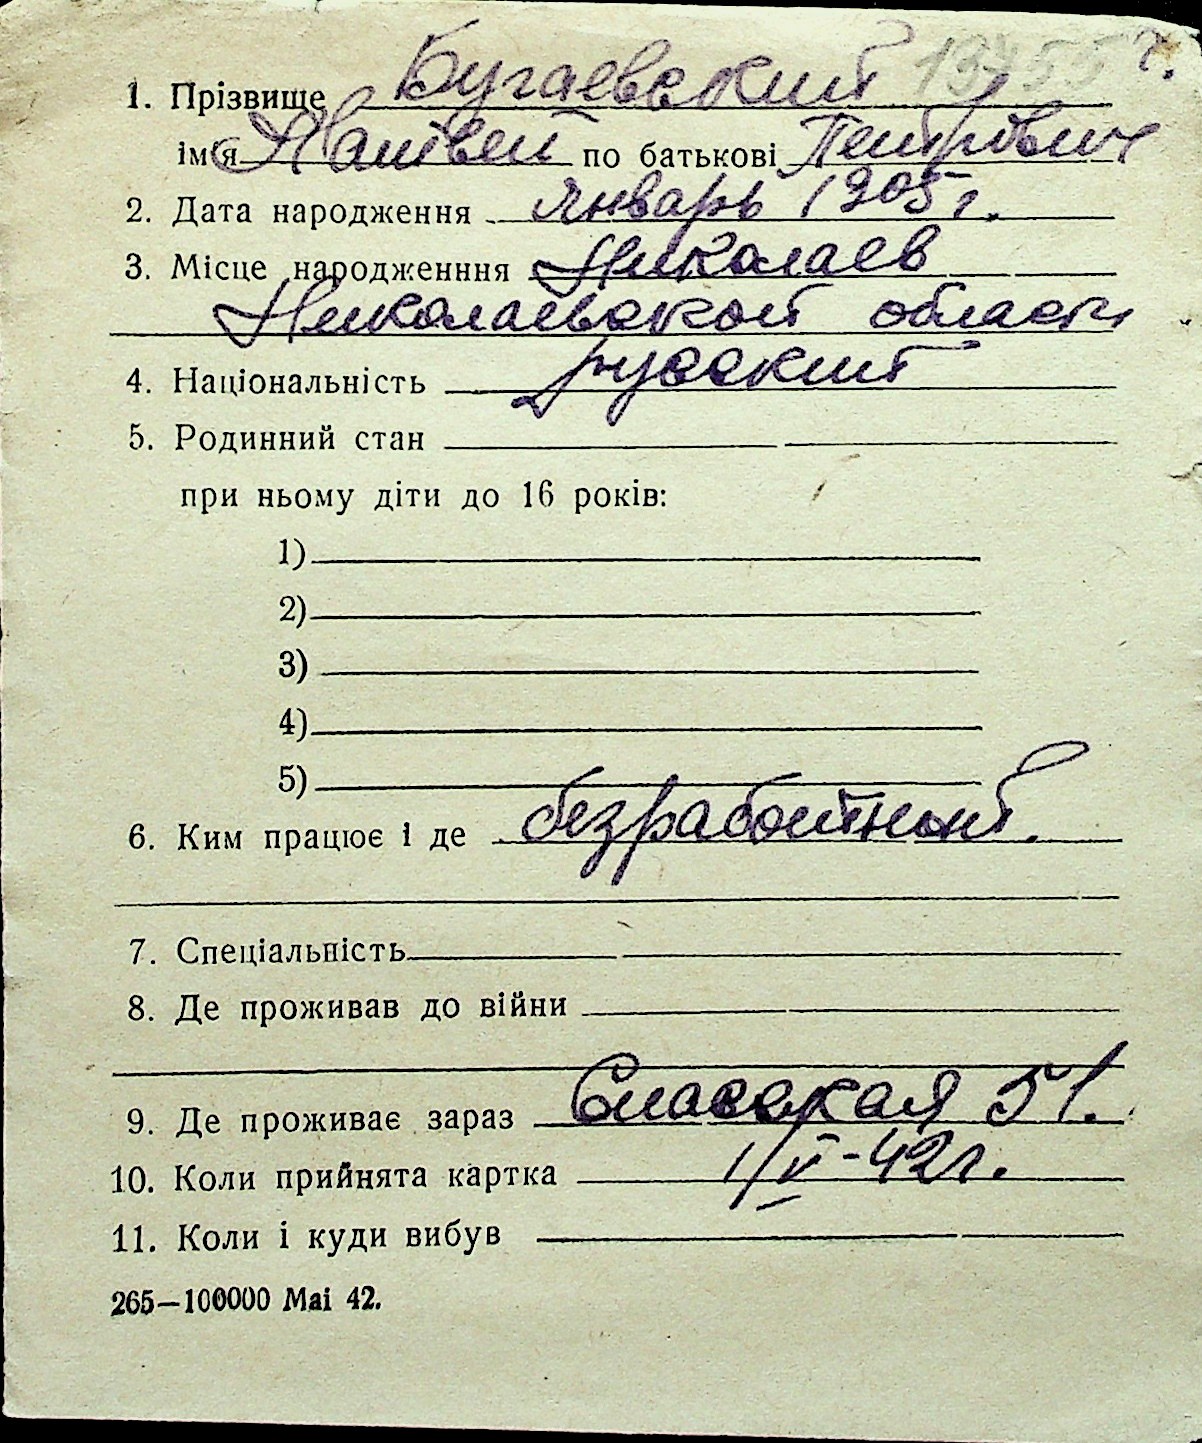 13755 г.
1. Прізвище Бугаевский
ім'я Матвей по батькові Петрович
2. Дата народження январь 1905 г.
3. Місце народженння Николаев
Николаевской области
4. Національність русский
5. Родинний стан
при ньому діти до 16 років:
1)
2)
3)
4)
5)
6. Ким працює і де безработный.
7. Спеціальність
8. Де проживав до війни
9. Де проживає зараз Спасская 51.
10. Коли прийнята картка 1/V-42 г.
11. Коли і куди вибув
265—100000 Mai 42.